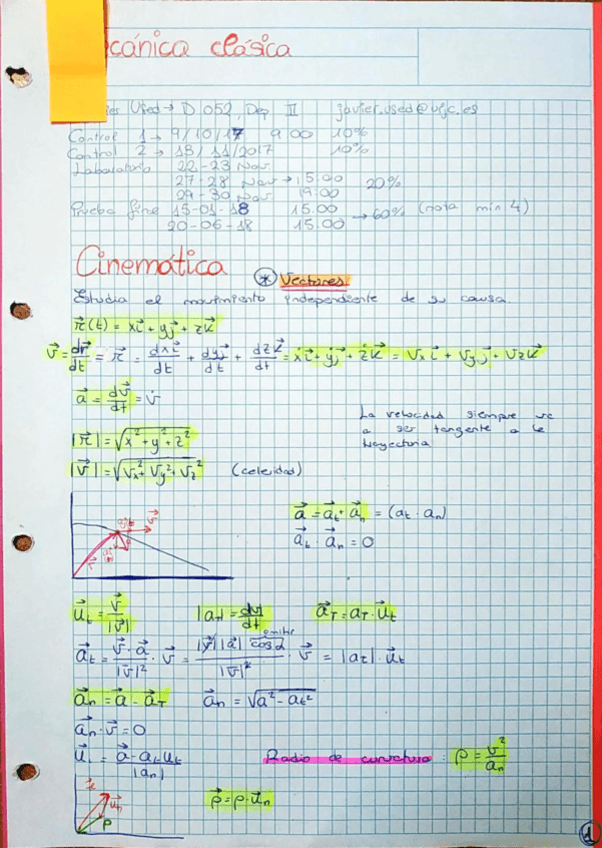 ecánica clásica
Used → D 052, Dep II javier.used@urjc.es
Control 1 → 9/10/17 9:00 10%
Control 2 → 13/11/2017 10%
Laboratorio 22-23 Nov
27-28 Nov → 15:00 20%
29-30 Nov 19:00
Prueba fine 15-01-18 15:00 → 60% (nota min 4)
20-06-18 15:00
Cinemática
* Vectores
Estudia el movimiento independiente de su causa.
r⃗(t) = xi⃗ + yj⃗ + zk⃗
v⃗ = dr⃗/dt = r⃗ = dxi⃗/dt + dyj⃗/dt + dzk⃗/dt = ẋi⃗ + ẏj⃗ + żk⃗ = Vxi⃗ + Vyj⃗ + Vzk⃗
a⃗ = dv⃗/dt = v̇
La velocidad siempre va
a ser tangente a la
trayectoria
|r⃗| = √x²+y²+z²
|v⃗| = √Vx²+Vy²+Vz² (celeridad)
a⃗ = a⃗t + a⃗n = (at · an)
a⃗t · a⃗n = 0
u⃗t = v⃗/|v⃗| |at| = dv/dt a⃗T = aT · u⃗t
a⃗t = v⃗·a⃗/|v⃗|² · v⃗ = |v⃗||a⃗| cos α/|v⃗|² · v⃗ = |at| · u⃗t
a⃗n = a⃗ - a⃗T a⃗n = √a² - at²
a⃗n · v⃗ = 0
u⃗ = a⃗ - at ut/|an| Radio de curvatura : ρ = v²/an
ρ⃗ = ρ · u⃗n
1